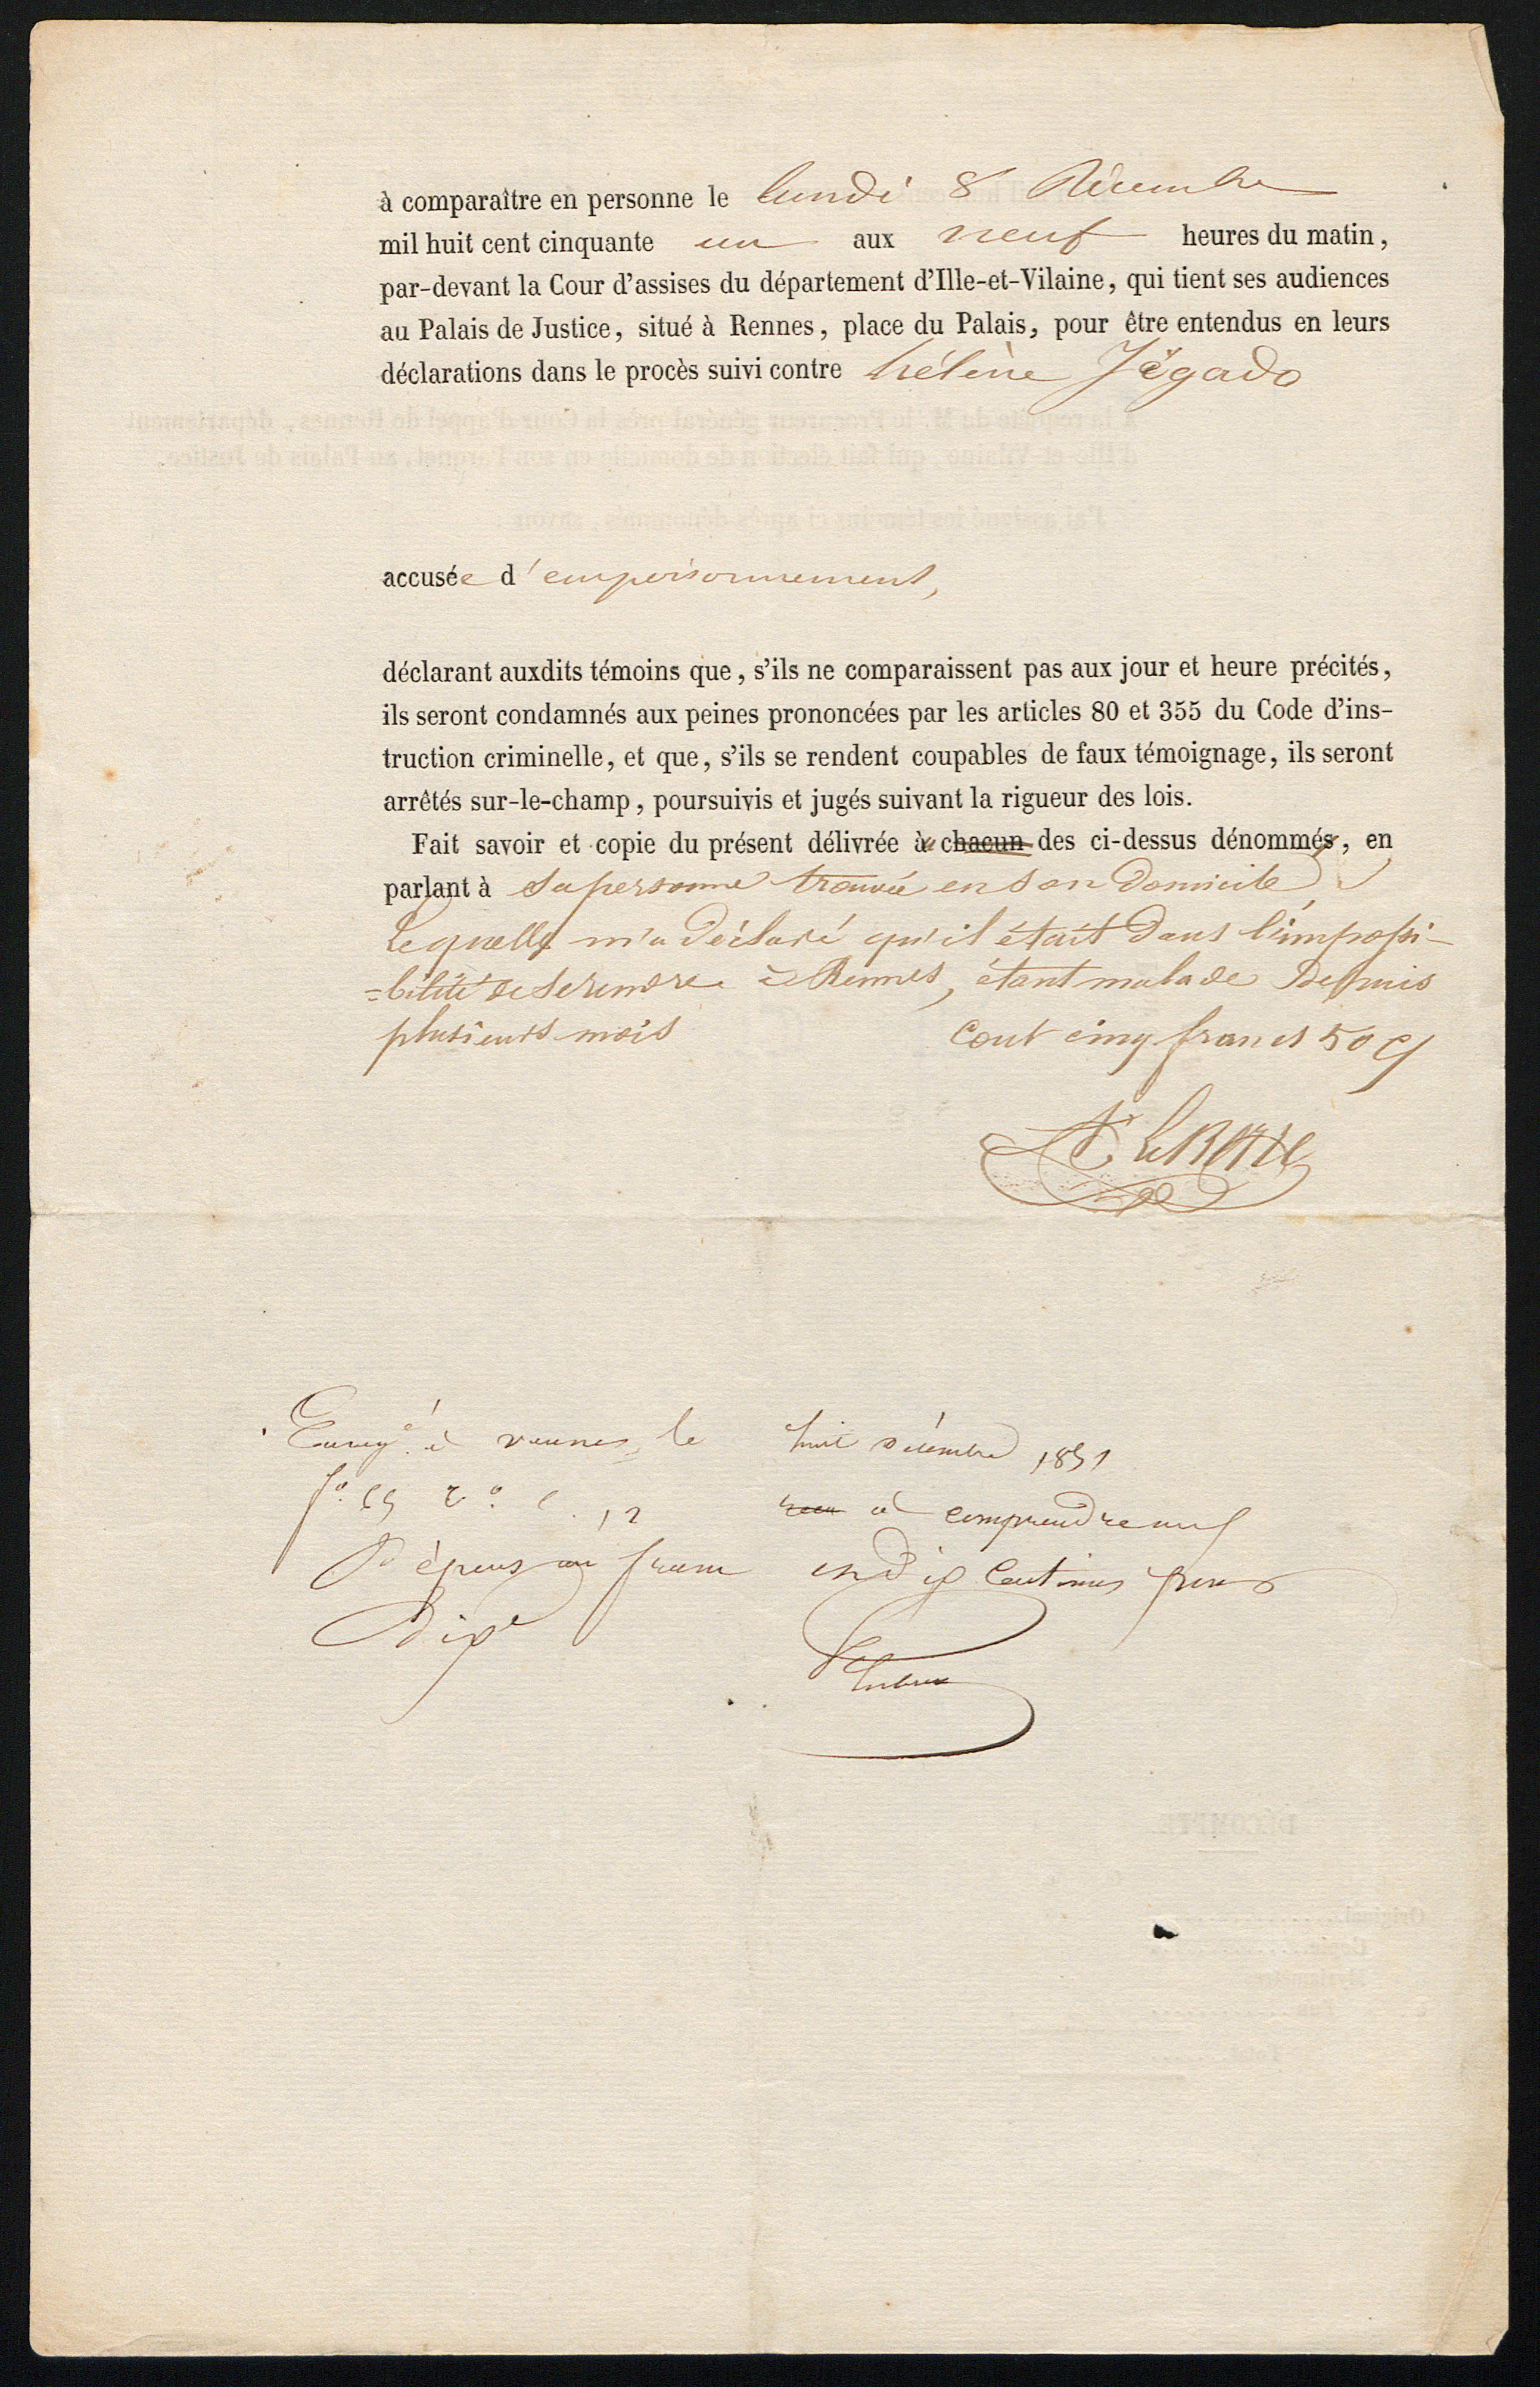 à comparaître en personne le lundi 8 Décembre
mil huit cent cinquante un aux neuf heures du matin,
par-devant la Cour d'assises du département d'Ille-et-Vilaine, qui tient ses audiences
au Palais de Justice, situé à Rennes, place du Palais, pour être entendus en leurs
déclarations dans le procès suivi contre hélène Jégado
accusée d'empoisonnement,
déclarant auxdits témoins que, s'ils ne comparaissent pas aux jour et heure précités,
ils seront condamnés aux peines prononcées par les articles 80 et 355 du Code d'ins-
truction criminelle, et que, s'ils se rendent coupables de faux témoignage, ils seront
arrêtés sur-le-champ, poursuivis et jugés suivant la rigueur des lois.
Fait savoir et copie du présent délivrée à chacun des ci-dessus dénommés, en
parlant à sa personne trouvée en son domicile
Lequelle m'a déclaré qu'il était dans l'impossi-
=bilité de se rendre à Rennes, étant malade depuis
plusieurs mois
Cout cinq francs 50 c
Enreg.é à vannes le huit décembre 1851
f.o 12
à comprendre
Dépens un franc en dix Centimes pour
Dixe